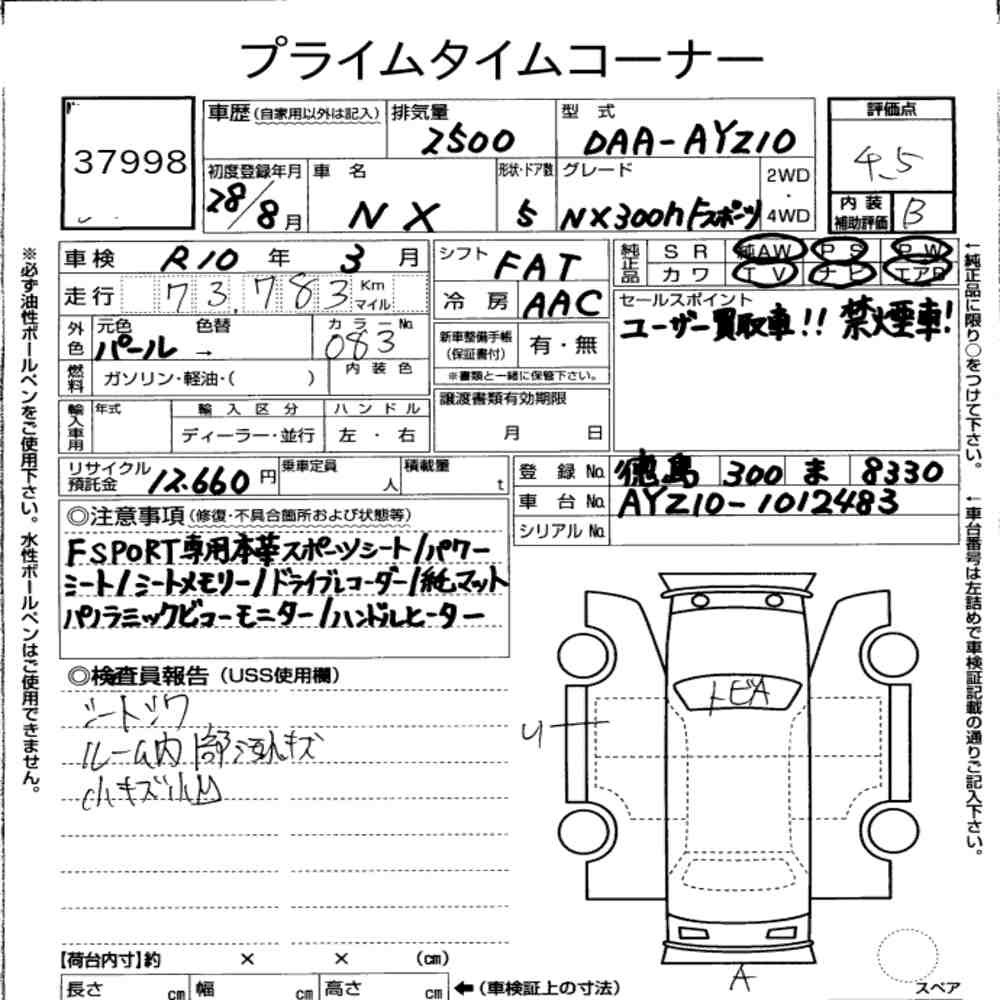 プライムタイムコーナー
37998
車歴 (自家用以外は記入)
排気量 2500
型式 DAA-AYZ10
評価点 4.5
初度登録年月 28/8月
車名 NX
形状・ドア数 5
グレード NX300h Fスポーツ
2WD・4WD
内装補助評価 B
車検 R10年 3月
シフト FAT
純正品 SR 純AW PS PW
カワ TV ナビ エアB
走行 73,783 Km マイル
冷房 AAC
セールスポイント
ユーザー買取車!! 禁煙車!
外色 元色 パール → 色替 カラーNo. 083
新車整備手帳(保証書付) 有・無
※書類と一緒に保管下さい。
燃料 ガソリン・軽油・( ) 内装色
譲渡書類有効期限 月 日
輸入車用 年式 輸入区分 ハンドル
ディーラー・並行 左・右
リサイクル預託金 12,660円 乗車定員 人 積載量 t
登録No. 徳島 300 ま 8330
車台No. AYZ10-1012483
シリアルNo.
◎注意事項(修復・不具合箇所および状態等)
F SPORT専用本革スポーツシート/パワー
シート/シートメモリー/ドライブレコーダー/純マット
パノラミックビューモニター/ハンドルヒーター
◎検査員報告 (USS使用欄)
シートシワ
ルーム内 部汚れキズ
小キズ小凹
トビA
U
A
スペア
【荷台内寸】約 × × (cm)
長さ cm 幅 cm 高さ cm ←(車検証上の寸法)
※必ず油性ボールペンをご使用下さい。水性ボールペンはご使用できません。
←純正品に限り○をつけて下さい。
←車台番号は左詰めで車検証記載の通りご記入下さい。